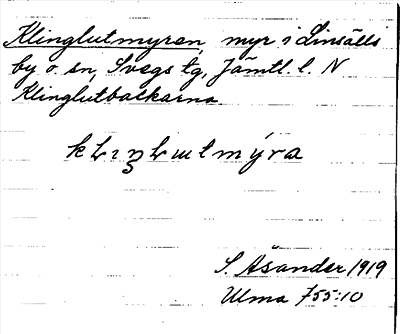 Klinglutmyren, myr i Linsälls
by o. sn, Svegs tg, Jämtl. l. N
Klinglutbackarna
S. Åsander 1919
Ulma 755:10